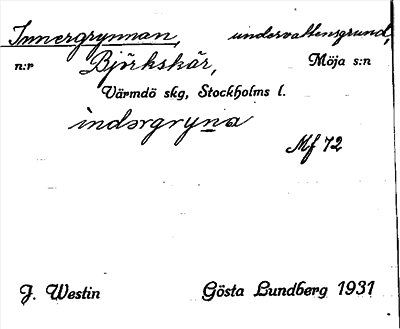 Innergrynnan, undervattensgrund,
n:r Björkskär, Möja s:n
Värmdö skg, Stockholms l.
indərgryna
Mf 72
J. Westin Gösta Lundberg 1931